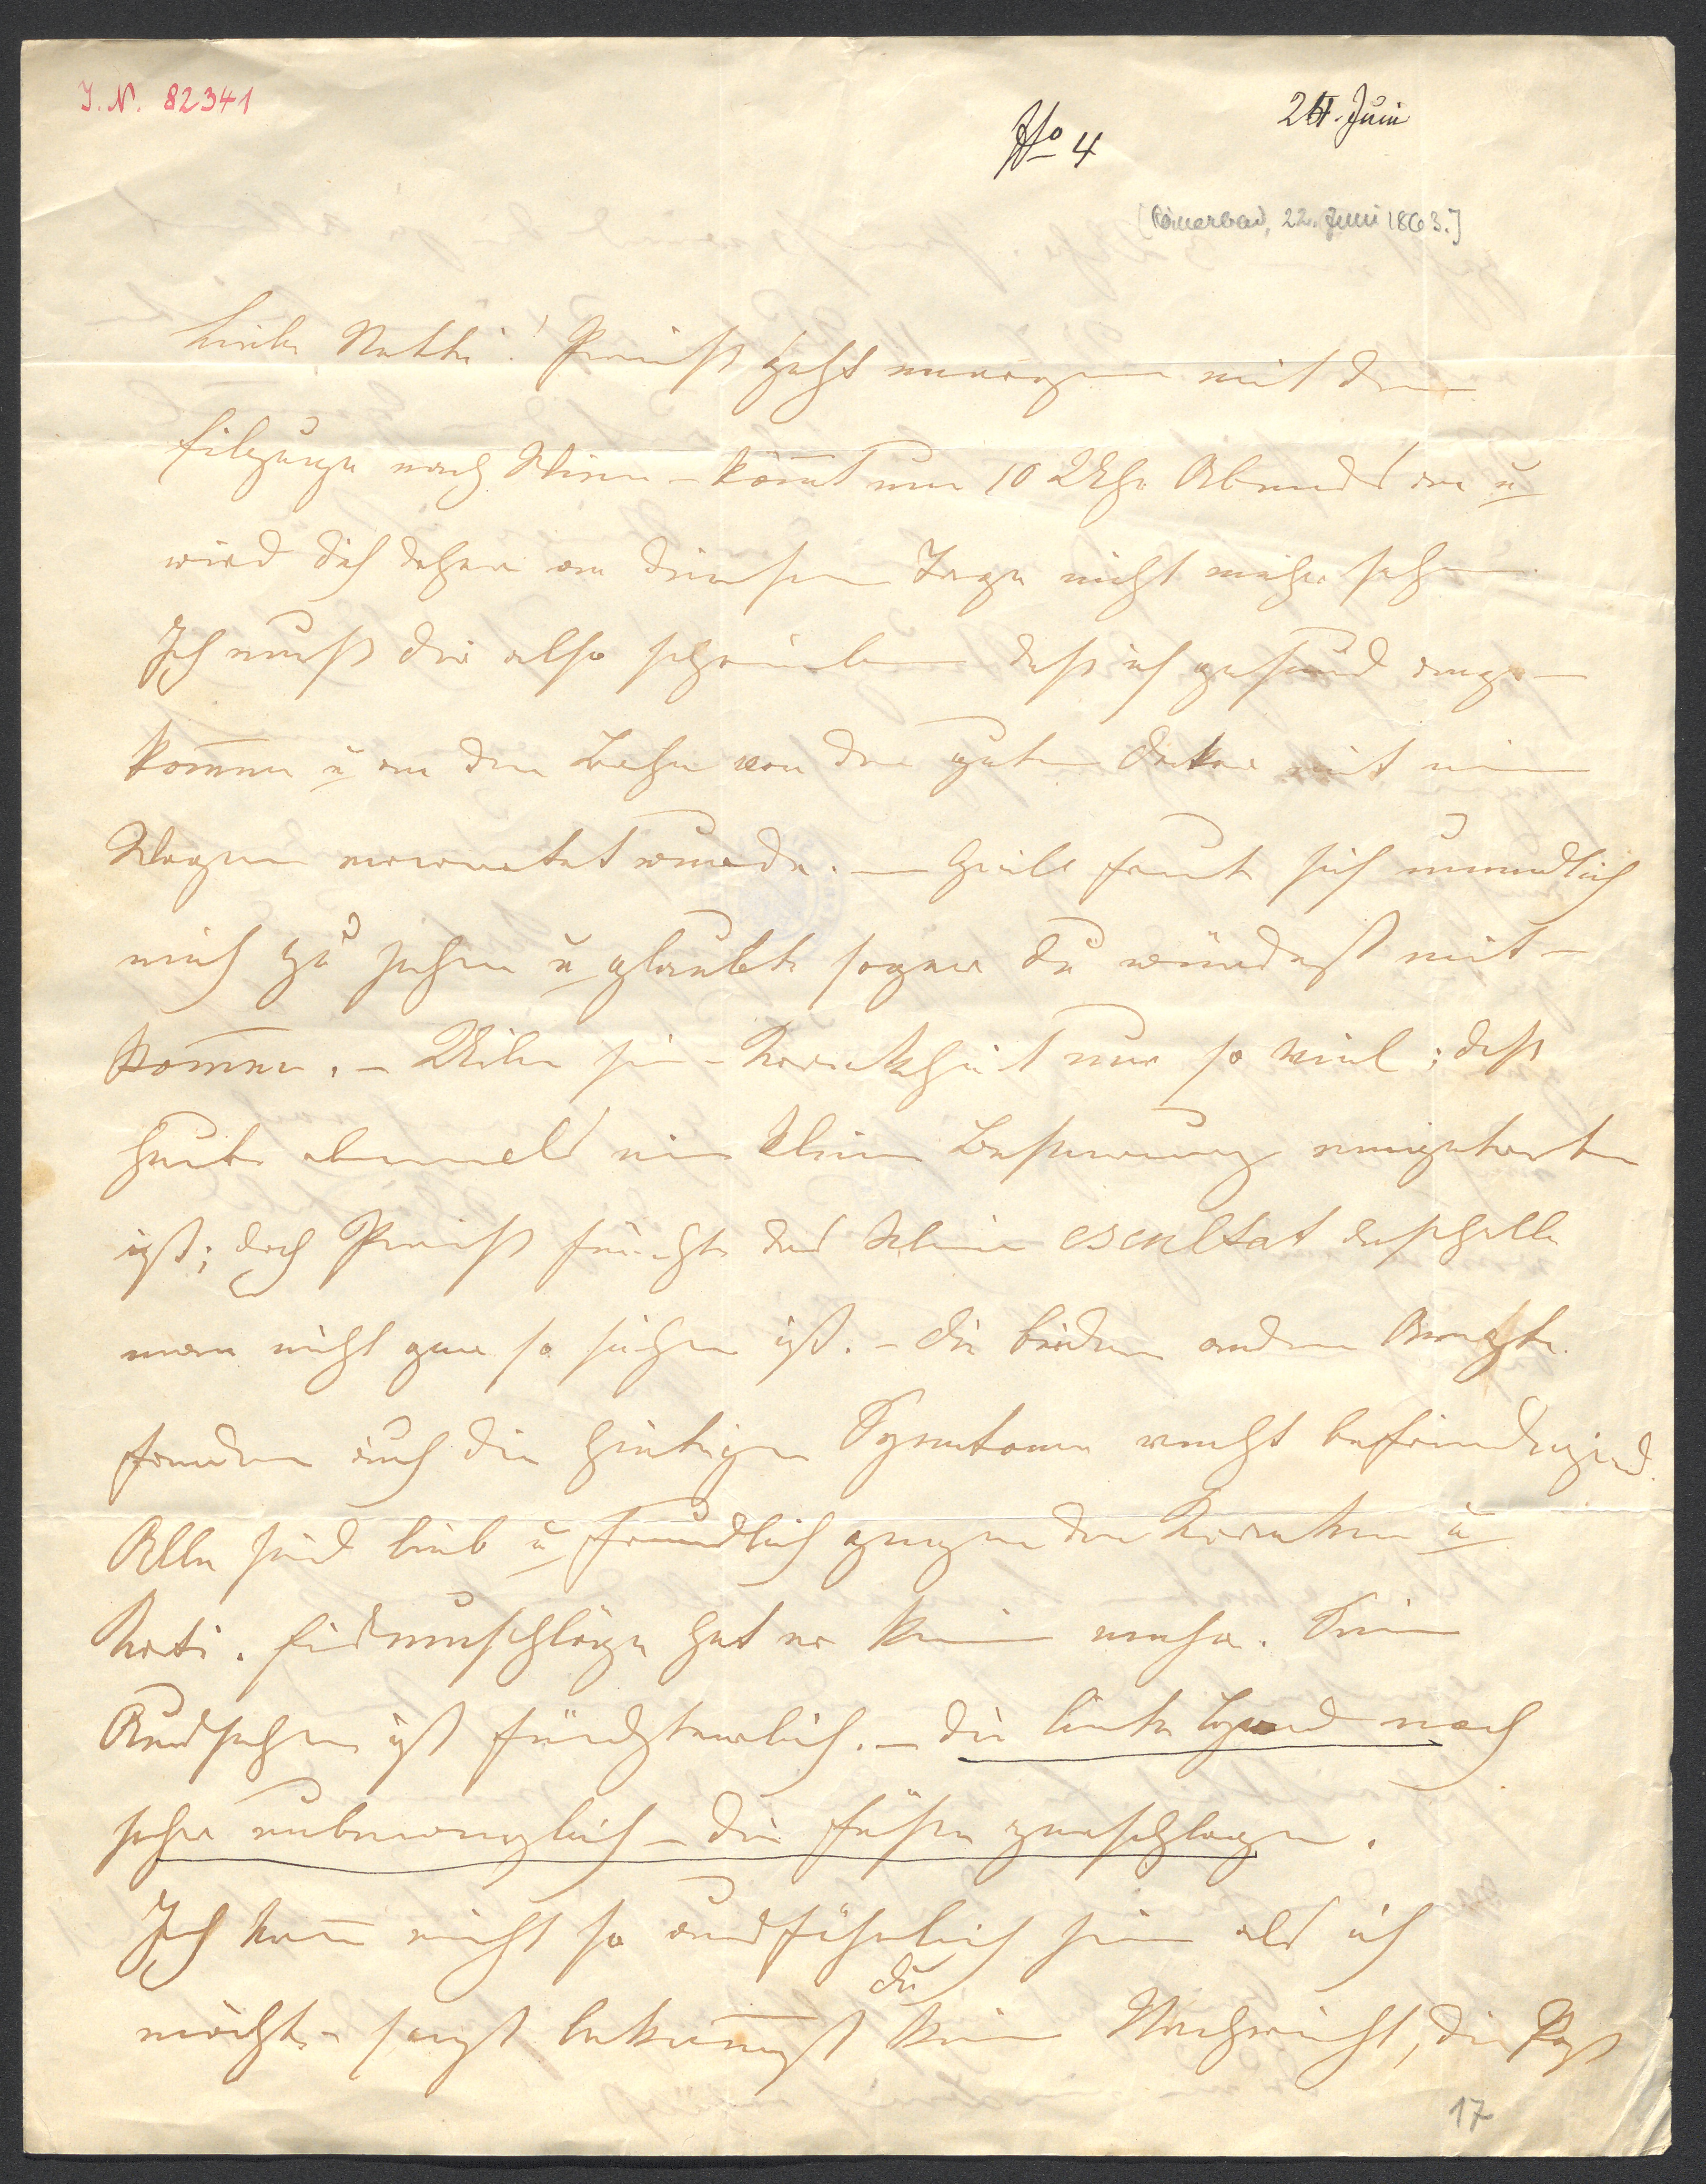 I. N. 82341
No 4
24. Juni
[Römerbad, 22. Juni 1863.]
Liebe Netti! Preiss geht morgen mit dem
Eilzuge nach Wien – kom̅t um 10 Uhr Abends an u
wird dich daher an diesem Tage nicht mehr sehen
Ich muß dir also schreiben daß ich gesund ange-
kom̅en u an der Bahn von dem guten Doktor mit einem
Wagen erwartet wurde. – freute sich unendlich
mich zu sehen u glaubte sogar du würdest mit-
kom̅en. – Über seine Krankheit nur so viel: daß
heute abermals eine kleine Besserung eingetreten
ist; doch Preiss fürchte das kleine deßhalb
man nicht gar so sicher ist. – die beiden andern Aerzte
finden auch die heutigen Symtome recht befriedigend.
Alle sind lieb u freundlich gegen den Kranken u
Kati. Eisumschläge hat er keine mehr. Sein
Aussehen ist fürchterlich. – die linke Hand noch
sehr unbeweglich – die Füße zerschlagen.
Ich kan̅ nicht so ausführlich sein als ich
möchte – sonst bekom̅st du keine Nachricht, die Post
17